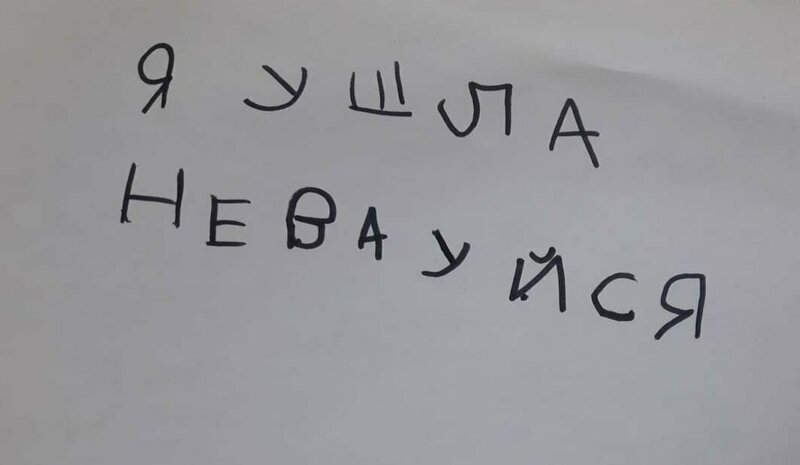 Я УШЛА
НЕВАУЙСЯ